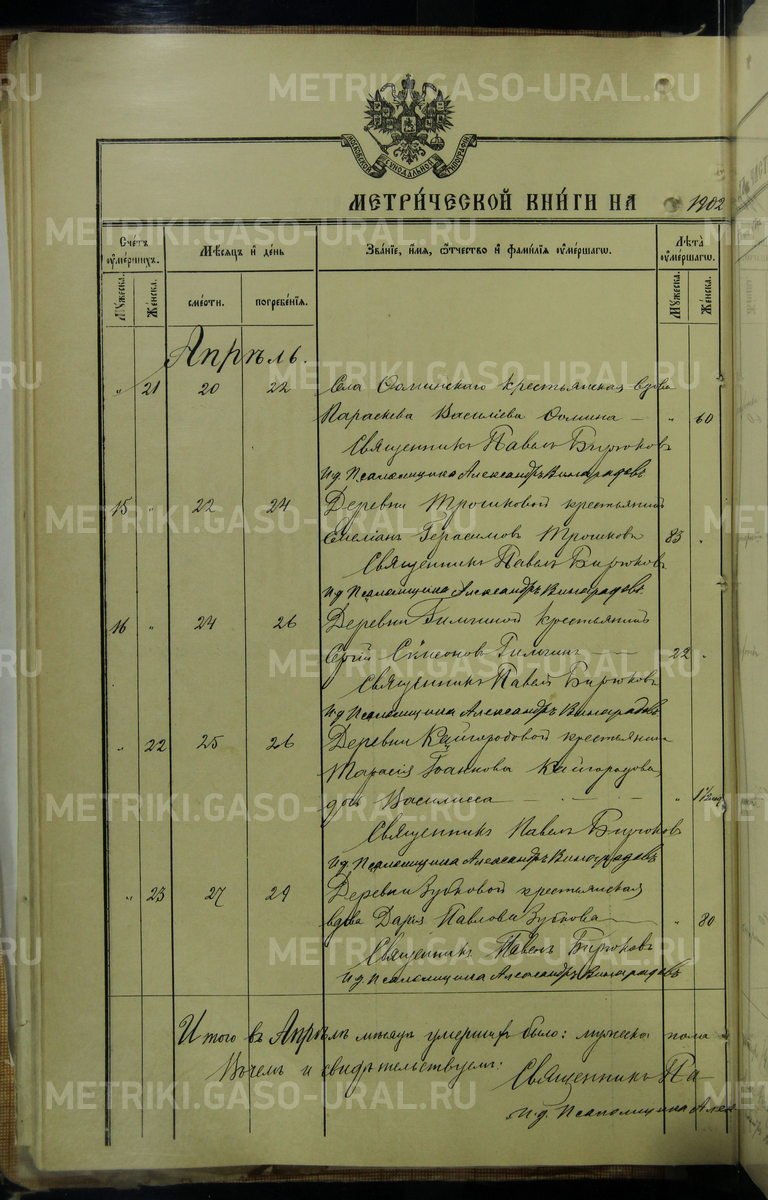 METRIKI.GASO-URAL.RU
МОСКОВСКОЙ СѴНОДАЛЬНОЙ ТИПОГРАФІИ
МЕТРИ́ЧЕСКОЙ КНИ́ГИ НА 1902
Сче́тъ ᲂу҆ме́ршихъ.
Мѣ́сяцъ и҆ де́нь
Зва́нїе, и҆́мя, ѻ҆́тчество и҆ фами́лїя ᲂу҆ме́ршагѡ.
Лѣ́та ᲂу҆ме́ршагѡ.
Мꙋ́жеска.
Же́нска.
сме́рти.
погребе́нїѧ.
Мꙋ́жеска.
Же́нска.
Апрѣль.
„ 21 20 22 Села крестьянская вдова
Параскева Василіева — „ 60
Священникъ Павелъ Бирюковъ
И.д. Псаломщика Александръ Виноградовъ
15 „ 22 24 Деревни Трошковой крестьянинъ
Емеліанъ Герасимовъ Трошковъ 83 „
Священникъ Павелъ Бирюковъ
И.д. Псаломщика Александръ Виноградовъ
16 „ 24 26 Деревни крестьянинъ
Сергій Симеоновъ — 22 „
Священникъ Павелъ Бирюковъ
И.д. Псаломщика Александръ Виноградовъ
„ 22 25 26 Деревни Кайгородовой крестьянина
Тарасія Іоаннова Кайгородова
дочь Василисса — „
Священникъ Павелъ Бирюковъ
И.д. Псаломщика Александръ Виноградовъ
„ 23 27 29 Деревни Зубковой крестьянская
вдова Дарія Павлова Зубкова — „ 80
Священникъ Павелъ Бирюковъ
И.д. Псаломщика Александръ Виноградовъ
Итого въ Апрѣлѣ мѣсяцѣ умершихъ было: мужеска пола
В чемъ и свидѣтельствуемъ: Священникъ Па
И.д. Псаломщика Алек